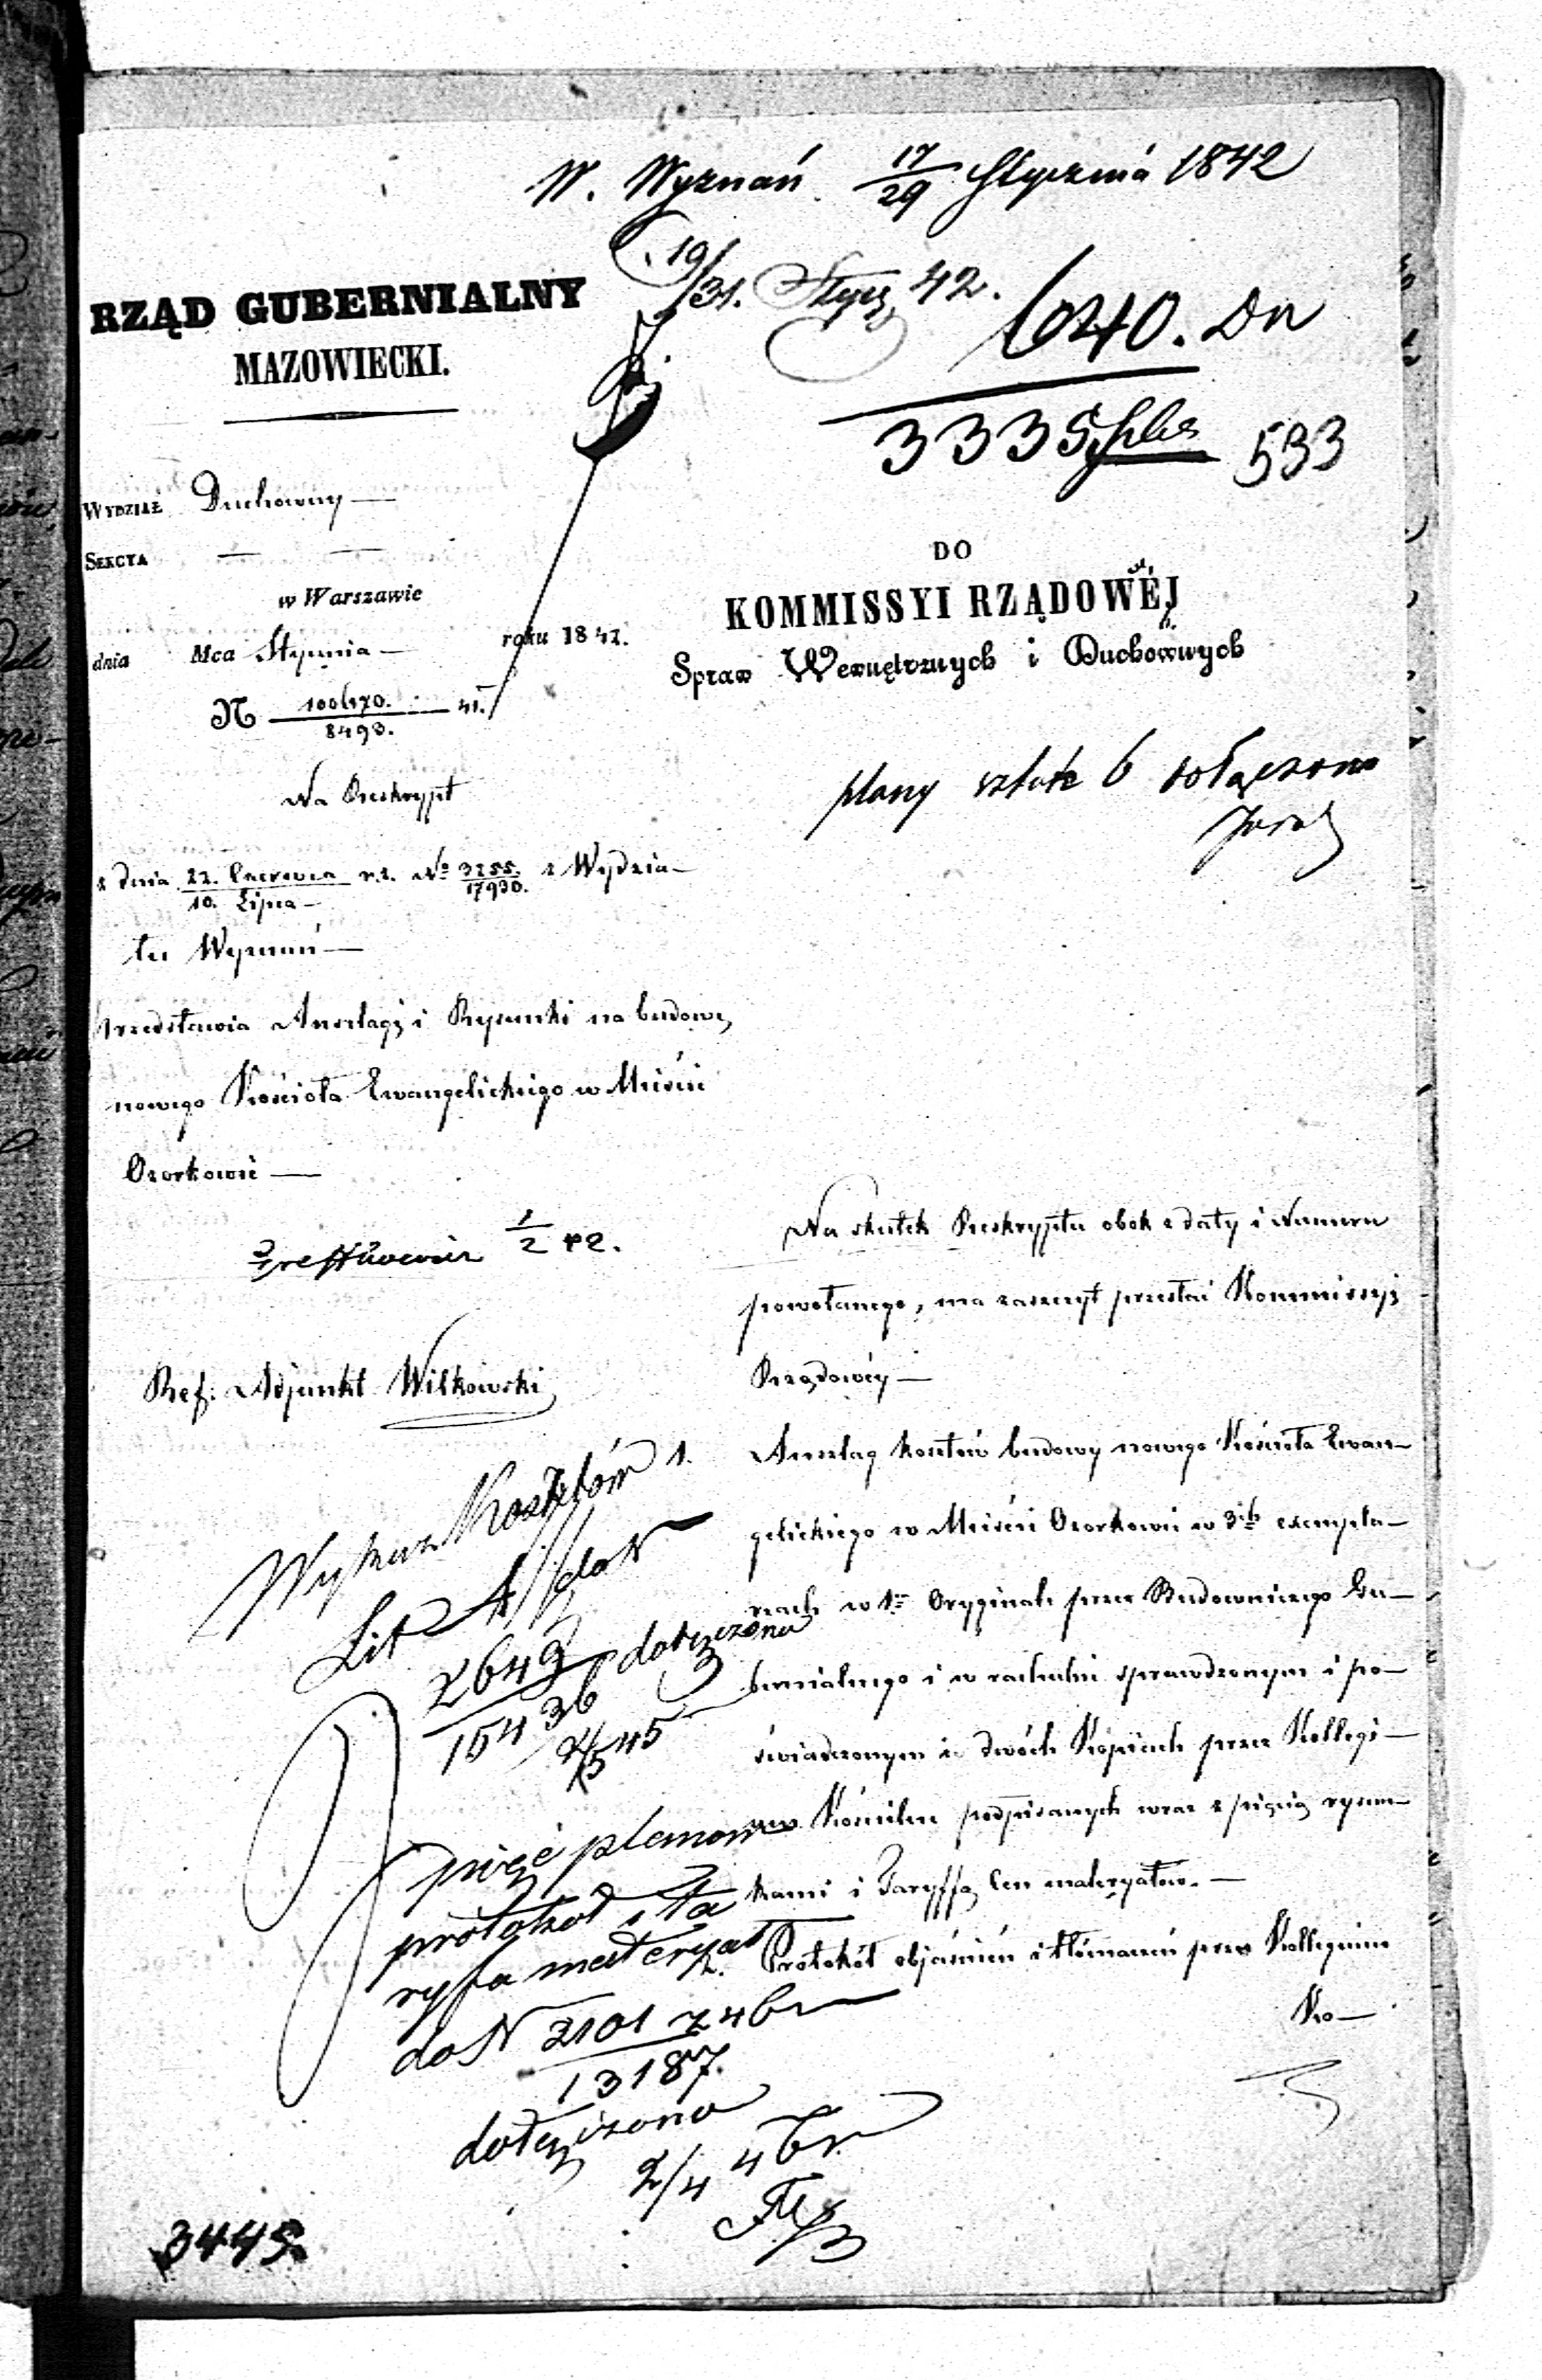 W. Wyznań 17/29 Stycznia 1842
19/31. Stycz 42.
RZĄD GUBERNIALNY
MAZOWIECKI.
1040. Dn
3335 533
WYDZIAŁ Duchowny —
SEKCYA — —
w Warszawie
dnia Mca Stycznia — roku 1842.
N 100670./8493. — 41.
DO
KOMMISSYI RZĄDOWÉJ
Spraw Wewnętrznych i Duchownych
plany sztuk 6 dołączono
Na Reskrypt
z dnia 22. Czerwca/10. Lipca r.z. No 3255./17930. z Wydzia—
łu Wyznań —
przedstawia Anszlagi i Rysunki na budowę
nowego Kościoła Ewangelickiego w Mieście
Ozorkowie —
1/2 42.
Ref: Adjunkt Wilkowski
Na skutek Reskryptu obok z daty i Numeru
powołanego, ma zaszczyt przesłać Kommissyi
Rządowéj —
1. Anszlag kosztów budowy nowego Kościoła Ewan—
gelickiego w Mieście Ozorkowie w 3ch exempla—
rzach w 1m Oryginale przez Budowniczego Gu—
bernialnego i w rachubie sprawdzonym i po—
świadczonym i w dwóch Kopiach przez Kollegi—
um Kościelne podpisanych wraz z pięcią rysun—
kami i Taryffą Cen materyałów. —
2. Protokół objaśnień i tłómaczeń przez Kollegium
Ko—
Wykaz Kosztów
Lit A do N
2649/15436 dołączono
2/5 45
pięć planów
protokół i ta
ryfa materyał
do N 2101/13187. 46
dołączono
2/4 46
3445